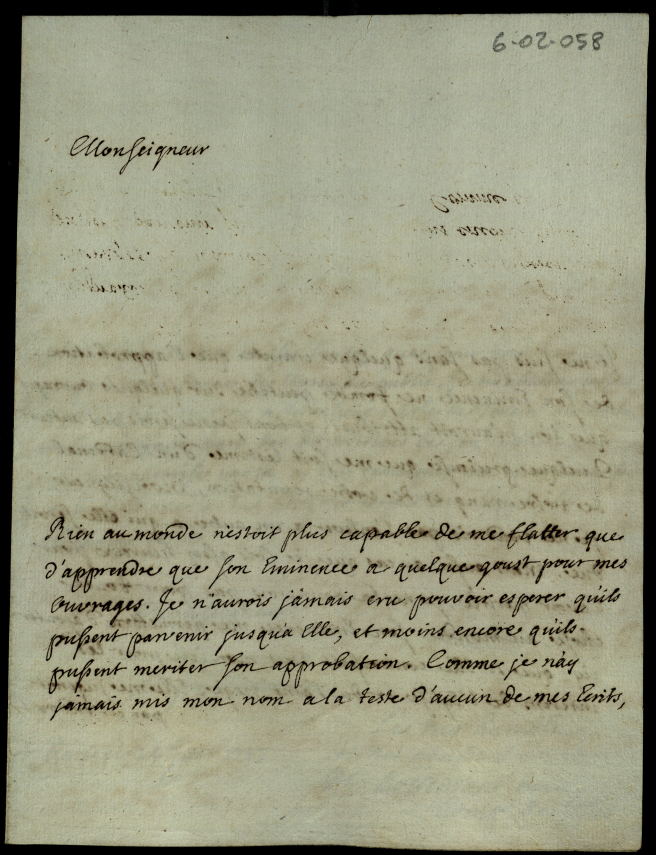 6-02-058
Monseigneur
Rien au monde n'estoit plus capable de me flatter que
d'apprendre que son Eminence a quelque goust pour mes
Ouvrages. Je n'aurois jamais cru pouvoir esperer qu'ils
pussent parvenir jusqu'a Elle, et moins encore qu'ils
pussent meriter son approbation. Comme je n'ay
jamais mis mon nom a la teste d'aucun de mes Ecrits,